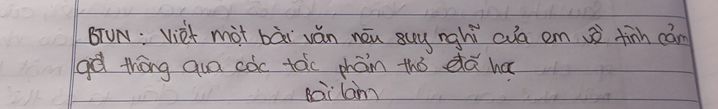 BTVN: Viết một bài văn nêu suy nghĩ của em về tình cảm
gđ thông qua các tác phẩm thơ đã học
Bài làm